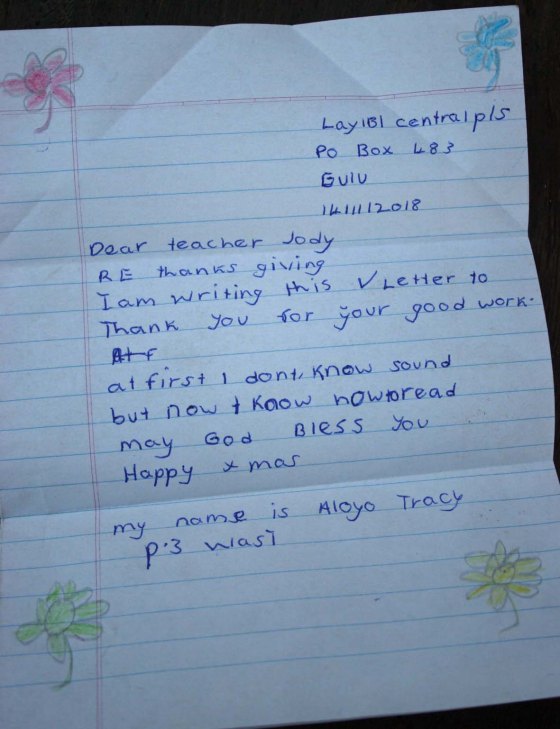 Layibi central p/s
Po Box 483
Gulu
14/11/2018
Dear teacher Jody
RE thanks giving
I am writing this Letter to
Thank you for your good work.
At f
at first I dont, know sound
but now I know how to read
may God Bless you
Happy x mas
my name is Aloyo Tracy
p.3